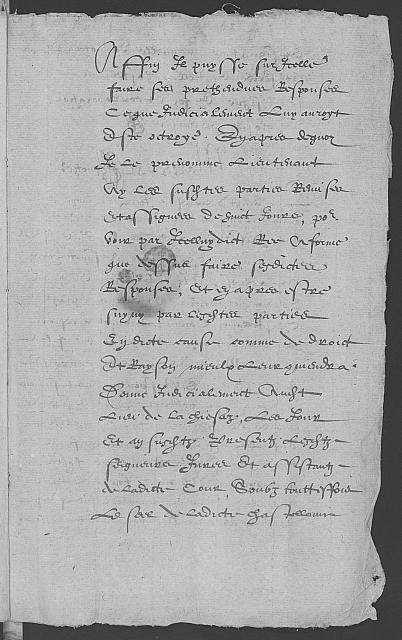 Affin Il puysse sur Icelle
faire ses prethendues Responses
Ce que Judicialement Luy auroyt
Este octroye. Et apres de quoy
Je Le prenomme Lieutenant
Ay Les susdictes parties Remises
et assignees de huict Jours, po{ur}
voir par Icelluy dict Ree A forme
que dessus faire sesdictes
Responses, Et en apres estre
suyvy par lesdictes parties
En dicte cause comme de droict
Et Rayson mieulx Leur quiendra.
Donne Judicialement Audict
Lieu de la chiesaz, Les Jour
Et an susdictz Presentz Lesdictz
seigneurs Jures Et assistantz
de ladicte Cour, Soubz touttesfois
Le seel de ladicte chastellanie